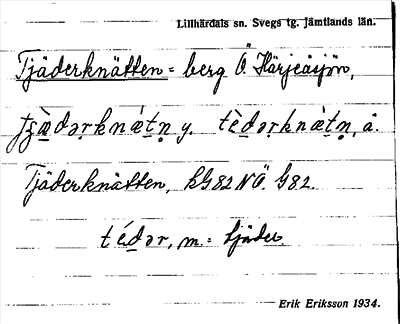 Lillhärdals sn. Svegs tg. Jämtlands län.
Tjäderknätten = berg Ö. Härjeåsjön,
tjæ̀dərknætn̥ y. tèdərknæ̀tn̥, ä.
Tjäderknätten, kG82NÖ G82.
tédər, m. = tjäder.
Erik Eriksson 1934.